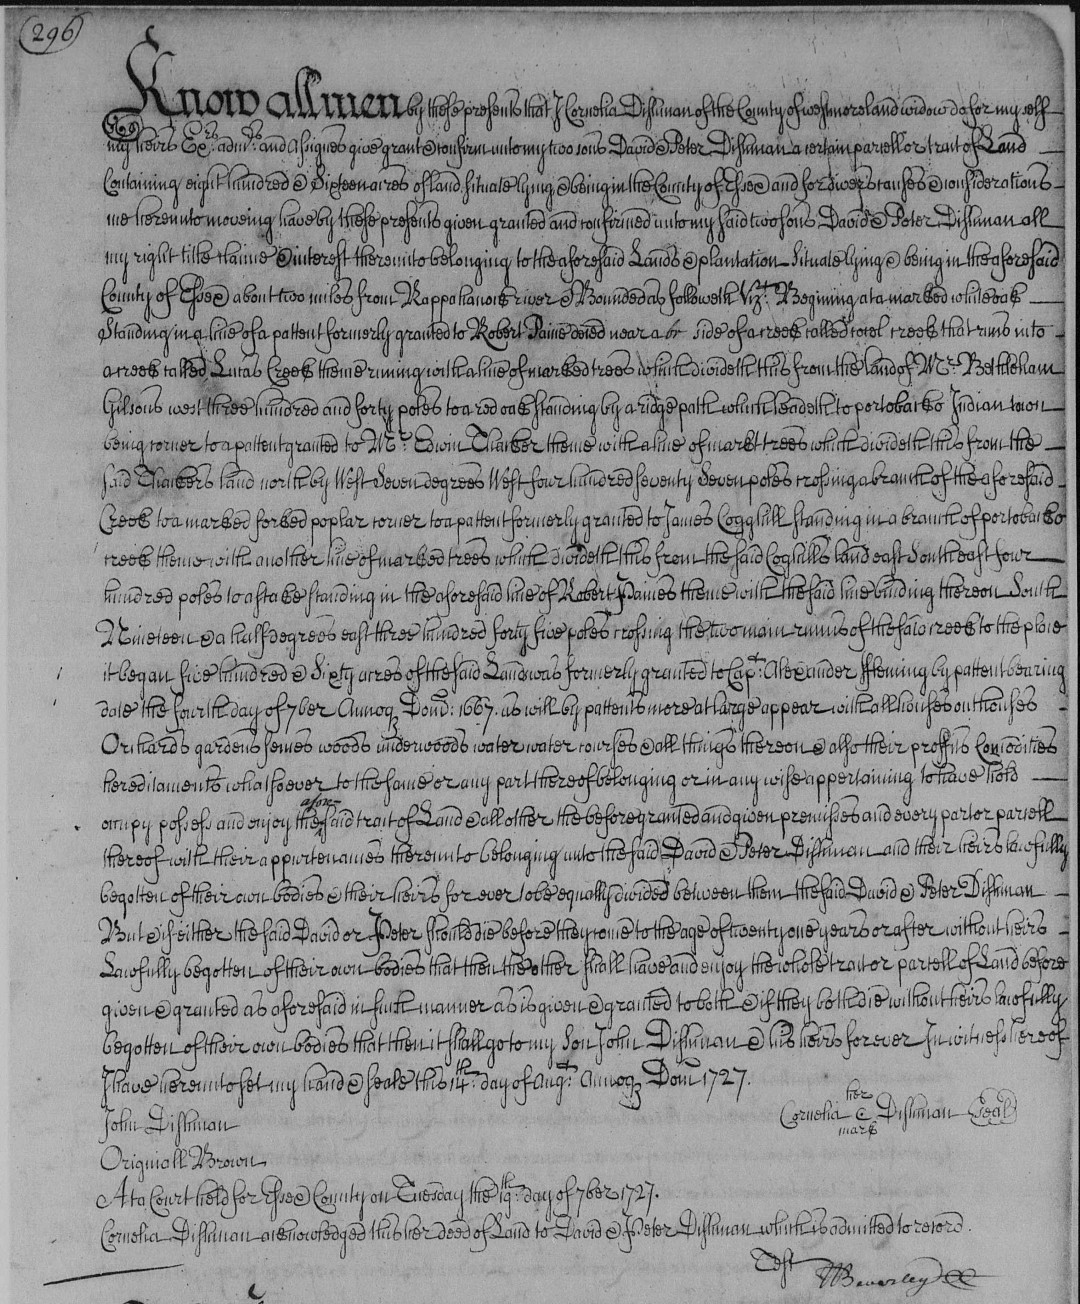 296
Know all men by these presents that I Cornelia Dishman of the County of westmoreland widow do for my self
my heirs Exrs: admrs: and assignes give grant & confirm unto my two sons David & Peter Dishman a certain parcell or tract of Land
Containing eight hundred & Sixteen acres of land situate lying & being in the County of Essex and for divers causes & considerations
me hereunto moveing have by these presents given granted and confirmed unto my said two sons David & Peter Dishman all
my right title claime & interest thereunto belonging to the aforesaid Lands & plantation Situate lying & being in the aforesaid
County of Essex about two miles from Rappahanock river & Bounded as followeth Vizt. Begining at a marked white oak
Standing in a line of a pattent formerly granted to Robert Paine near side of a creek called creek that runs into
a creek called Lucas Creek thence runing with a line of marked trees which divideth this from the land of Mr. Bethleham
Gilsons west three hundred and forty poles to a red oak standing by a ridge path which leadeth to portobacko Indian town
being corner to a pattent granted to Mr. Edwin Thacker thence with a line of markt trees which divideth this from the
said Thackers land north by West Seven degrees West four hundred seventy Seven poles crossing a branch of the aforesaid
Creek to a marked forked poplar corner to a pattent formerly granted to James Coghill standing in a branch of portobacko
creek thence with another line of marked trees which divideth this from the said Coghills land east South east four
hundred poles to a stake standing in the aforesaid line of Robert Paines thence with the said line binding thereon South
Nineteen & a half degrees east three hundred forty five poles crossing the two main runns of the said creek to the place
it began five hundred & Sixty acres of the said Land was formerly granted to Capt. Alexander Fleming by pattent bearing
date the fourth day of 7ber Annoq Domi: 1667. as will by pattents more at large appear with all houses outhouses
Orchards gardens fences woods underwoods water water courses & all things thereon & also their proffits Comodities
hereditaments whatsoever to the same or any part thereof belonging or in any wise appertaining to have hold
occupy possess and enjoy the afore said tract of Land & all other the before granted and given premisses and every part or parcell
thereof with their appurtenances thereunto belonging unto the said David & Peter Dishman and their heirs lawfully
begotten of their own bodies & their heirs for ever to be equally divided between them the said David & Peter Dishman
But & if either the said David or Peter should die before they come to the age of twenty one years or after without heirs
Lawfully begotten of their own bodies that then the other shall have and enjoy the whole tract or parcell of Land before
given & granted as aforesaid in such manner as is given & granted to both & if they both die without heirs lawfully
begotten of their own bodies that then it shall go to my Son John Dishman & his heirs forever In witness hereof
I have hereunto set my hand & seale this 14th. day of Augt. Annoq Domi 1727.
her
John Dishman Cornelia C Dishman Seal
mark
Originall Brown
At a Court held for Essex County on Tuesday the 19th. day of 7ber 1727.
Cornelia Dishman acknowledged this her deed of Land to David & Peter Dishman which is admitted to record.
Test
WBeverley CC